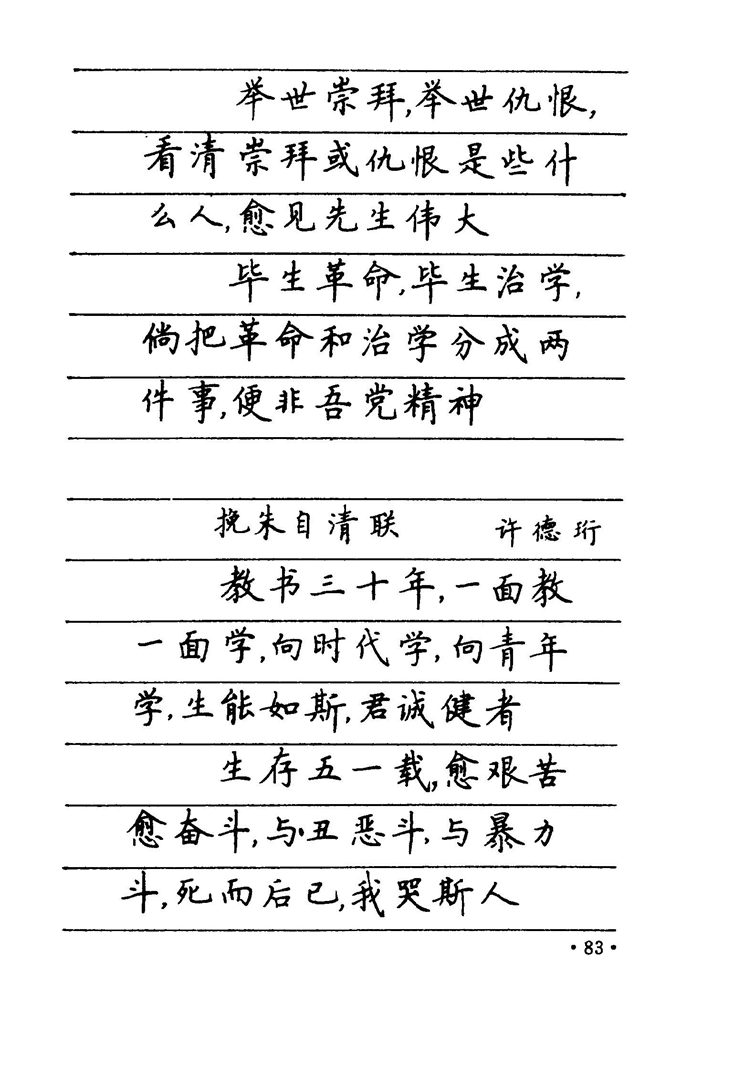 举世崇拜,举世仇恨,
看清崇拜或仇恨是些什
么人,愈见先生伟大
毕生革命,毕生治学,
倘把革命和治学分成两
件事,便非吾党精神
挽朱自清联 许德珩
教书三十年,一面教
一面学,向时代学,向青年
学,生能如斯,君诚健者
生存五一载,愈艰苦
愈奋斗,与丑恶斗,与暴力
斗,死而后已,我哭斯人
·83·